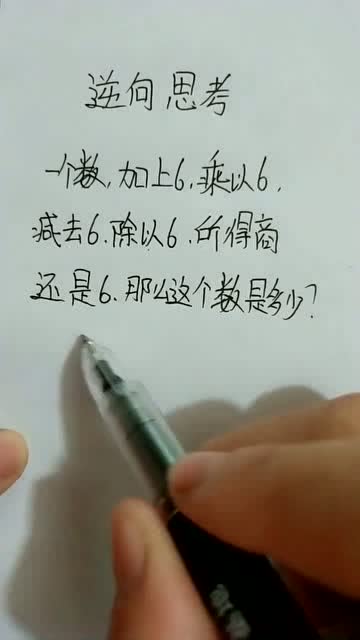 逆向思考
一个数,加上6,乘以6,
减去6,除以6,所得商
还是6,那么这个数是多少?